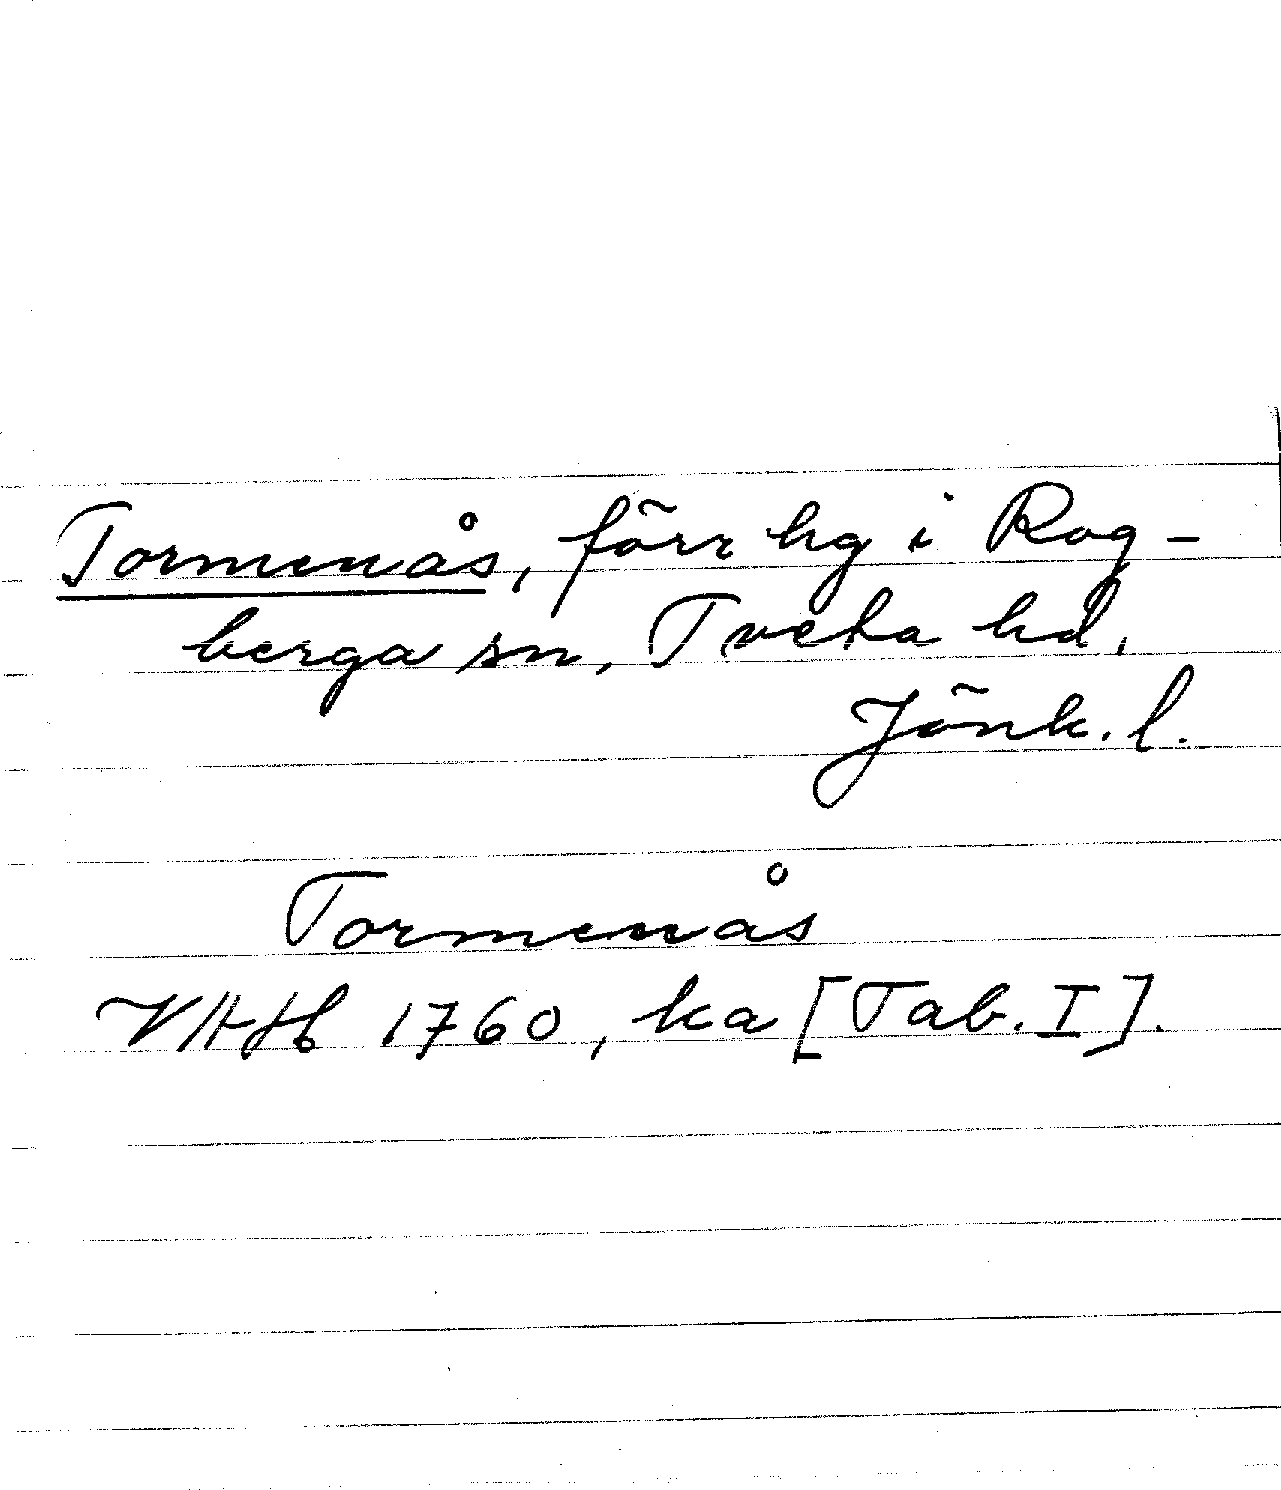 Tormenås, förr hg i Rog-
berga sn, Tveta hd,
Jönk. l.
Tormenås
VHAH 1760, ka [Tab. I].